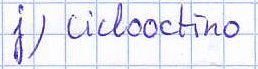 j) ciclooctino